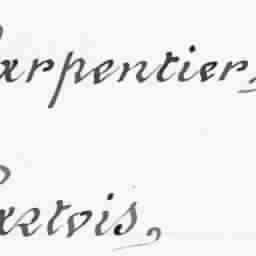 Carpentier,
Cartois,